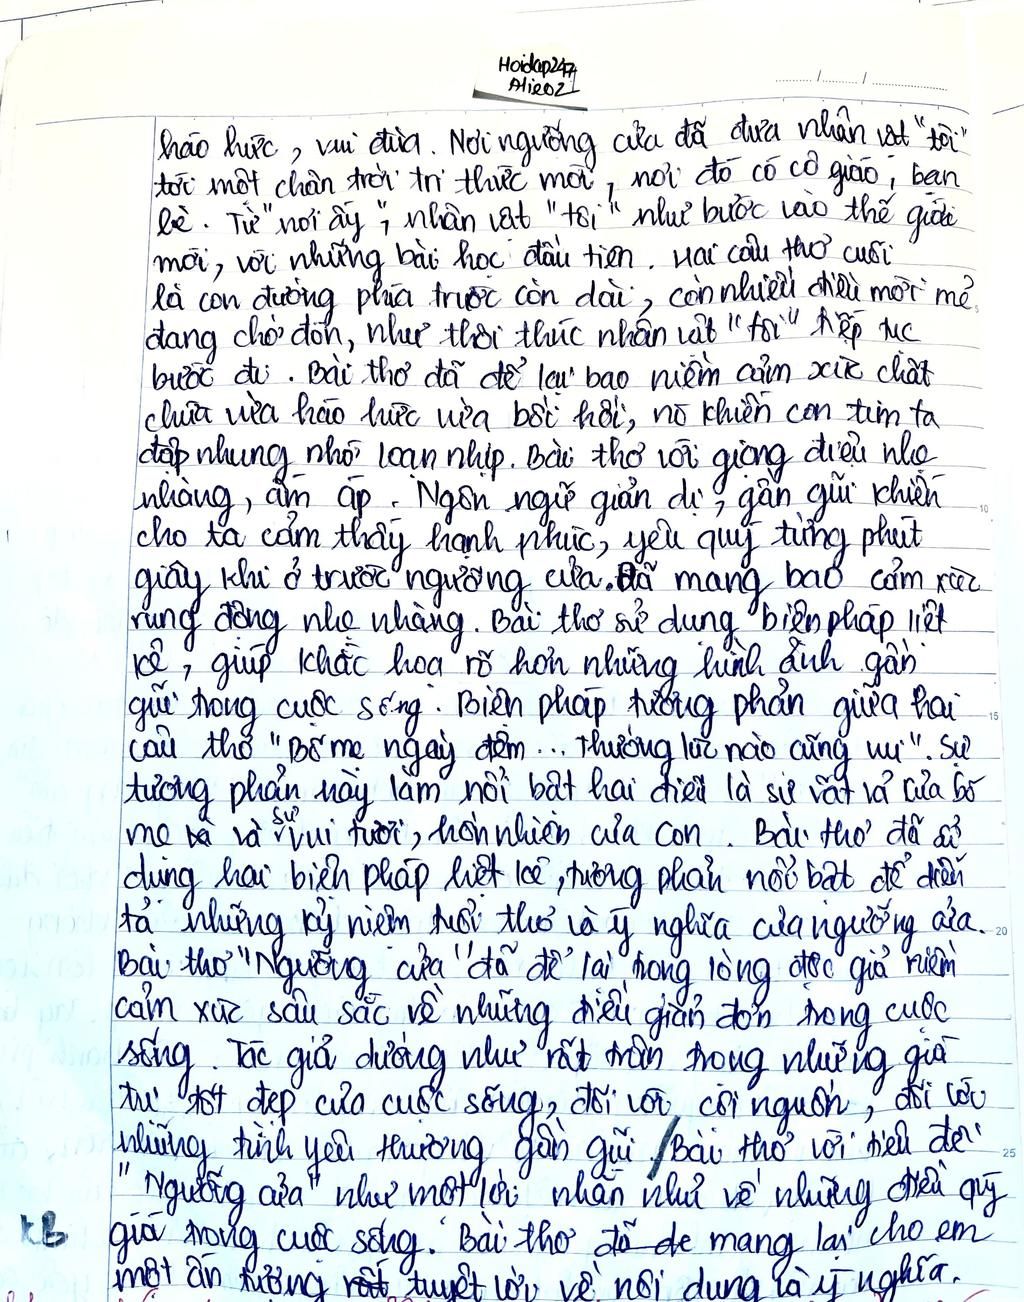 Hoidap247
Alie021
háo hức, vui đùa. Nơi ngưỡng cửa đã đưa nhân vật "tôi"
tới một chân trời tri thức mới, nơi đó có cô giáo, bạn
bè. Từ "nơi ấy", nhân vật "tôi" như bước vào thế giới
mới, với những bài học đầu tiên. Hai câu thơ cuối
là con đường phía trước còn dài, còn nhiều điều mới mẻ
đang chờ đón, như thôi thúc nhân vật "tôi" tiếp tục
bước đi. Bài thơ đã để lại bao niềm cảm xúc chất
chứa vừa háo hức vừa bồi hồi, nó khiến con tim ta
đập nhưng nhỡ loạn nhịp. Bài thơ với giọng điệu nhẹ
nhàng, ấm áp. Ngôn ngữ giản dị, gần gũi khiến
cho ta cảm thấy hạnh phúc, yêu quý từng phút
giây khi ở trước ngưỡng cửa. Đã mang bao cảm xúc
rung động nhẹ nhàng. Bài thơ sử dụng biện pháp liệt
kê, giúp khắc hoạ rõ hơn những hình ảnh gần
gũi trong cuộc sống. Biện pháp tương phản giữa hai
câu thơ "Bố mẹ ngày đêm... Thường lúc nào cũng vui". Sự
tương phản này làm nổi bật hai điều là sự vất vả của bố
mẹ và sự vui tươi, hồn nhiên của con. Bài thơ đã sử
dụng hai biện pháp liệt kê, tương phản nổi bật để diễn
tả những kỷ niệm tuổi thơ và ý nghĩa của ngưỡng cửa.
Bài thơ "Ngưỡng cửa" đã để lại trong lòng độc giả niềm
cảm xúc sâu sắc về những điều giản đơn trong cuộc
sống. Tác giả dường như rất trân trọng những giá
trị tốt đẹp của cuộc sống, đối với cội nguồn, đối với
những tình yêu thương gần gũi / Bài thơ với tiêu đề
"Ngưỡng cửa" như một lời nhắn nhủ về những điều quý
KB giá trong cuộc sống. Bài thơ đã để mang lại cho em
một ấn tượng rất tuyệt vời về nội dung là ý nghĩa.
10
15
20
25